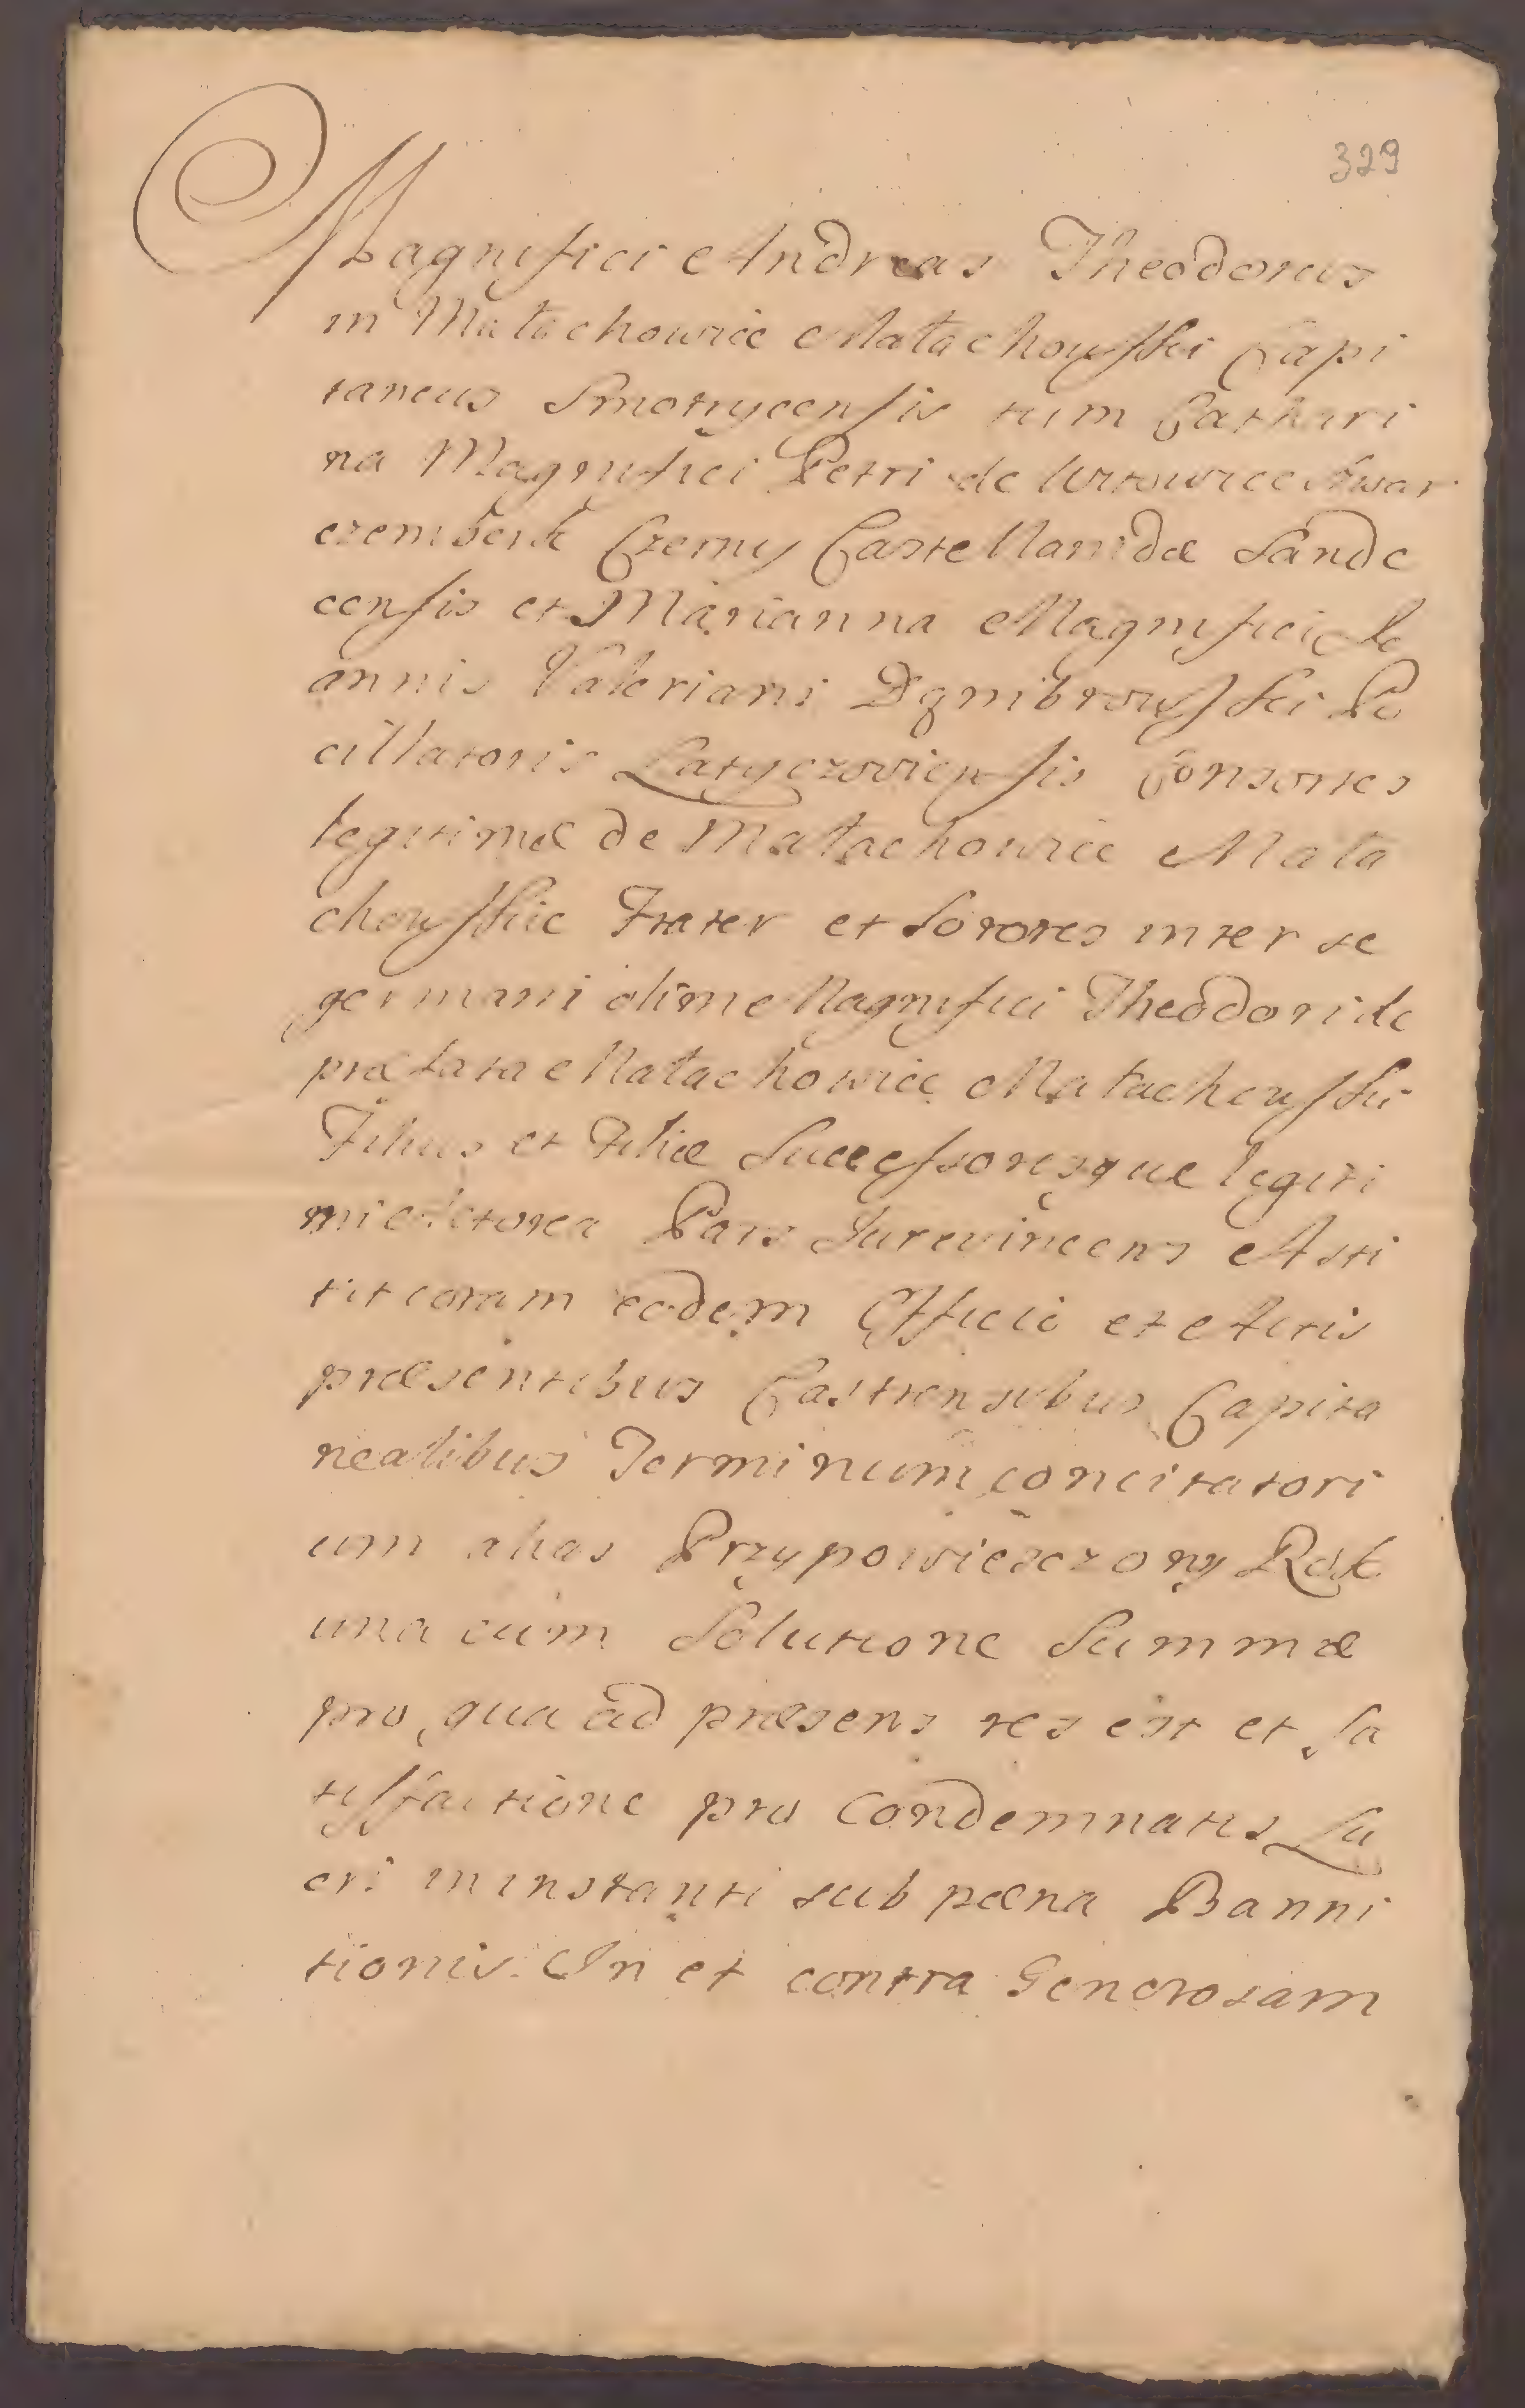 329
Magnifici Andreas Theodorus
in Małachowice Małachowski Capi
taneus Smotrycensis tum Cathari
na Magnifici Petri de Witowice Szwar
czemberk Czerny Castellanidæ Sande
censis et Marianna Magnifici Jo
annis Valeriani Dęmbrowski Po
cillatoris Latyczoviensis Consortes
legitimæ de Małachowice Mała
chowskie Frater et Sorores inter se
germani olim Magnifici Theodori de
præfata Małachowice Małachowski
Filius et Filiæ Successoresque legiti
mi Actorea Pars Jurevincens Asti
tit coram eodem Officio et Actis
præsentibus Castrensibus Capita
nealibus Terminum concitatori
um alias Przypowieszczony Rok
una cum Solutione Summæ
pro qua ad præsens res est et sa
tisfactione pro condemnatis Lu
cri in instanti sub pæna Banni
tionis. In et contra Generosam